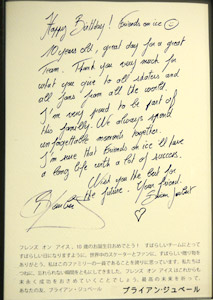 Happy Birthday! Friends on ice ☺
10 years old, great day for a great
Team. Thank you very much for
what you give to all skaters and
all fans from all the world.
I'm very proud to be part of
this family. We always spend
unforgettable moments together.
I'm sure that Friends on ice'll have
a long life with a lot of success.
Wish you the best for
the future. Your friend,
Brian Joubert
フレンズ オン アイス、10歳のお誕生日おめでとう! すばらしいチームにとって
すばらしい日になりますように。世界中のスケーターとファンに、すばらしい贈り物を
ありがとう。私はこのファミリーの一員であることを誇りに思っています。私たちは
いつも、忘れられない瞬間をともにしてきました。フレンズ オン アイスはこれからも
末永く成功をおさめていくことでしょう。最高の未来を祈って。
あなたの友、ブライアン・ジュベール
ブライアン・ジュベール